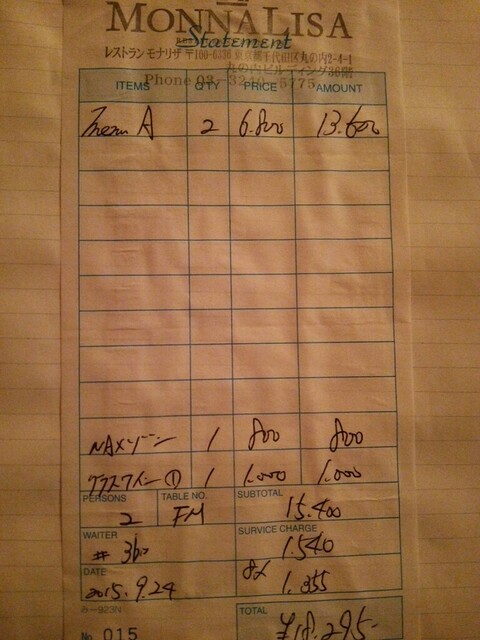 MONNALISA
Statement
レストラン モナリザ 〒100-6336 東京都千代田区丸の内2-4-1
丸の内ビルディング36階
Phone 03-3240-5775
ITEMS Q'TY PRICE AMOUNT
Menu A 2 6.800 13.600
1 800 800
グラスワイン ① 1 1.000 1.000
PERSONS TABLE NO. SUBTOTAL
2 FM 15.400
WAITER SERVICE CHARGE
# 1.540
DATE 8%
2015.9.24 1.355
み-923N TOTAL
No. 015 ¥18.295-